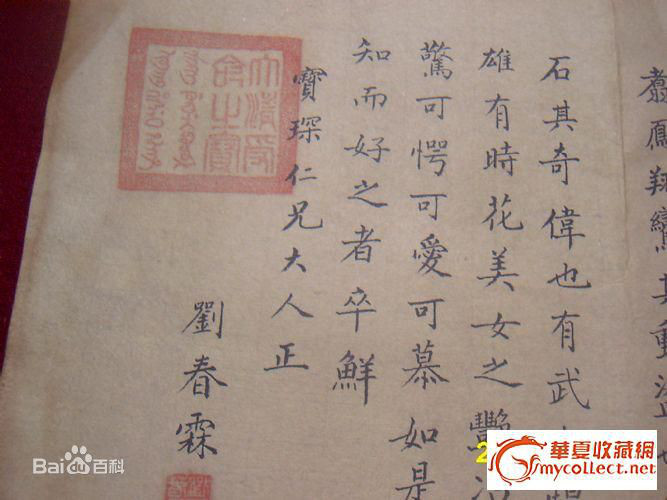 翥鳳翔鸞其動盪
石其奇偉也有武
雄有時花美女之艷
驚可愕可愛可慕如是
知而好之者卒鮮
寶琛仁兄大人正
劉春霖
大清受
命之寶
Bai百科
華夏收藏網
mycollect.net